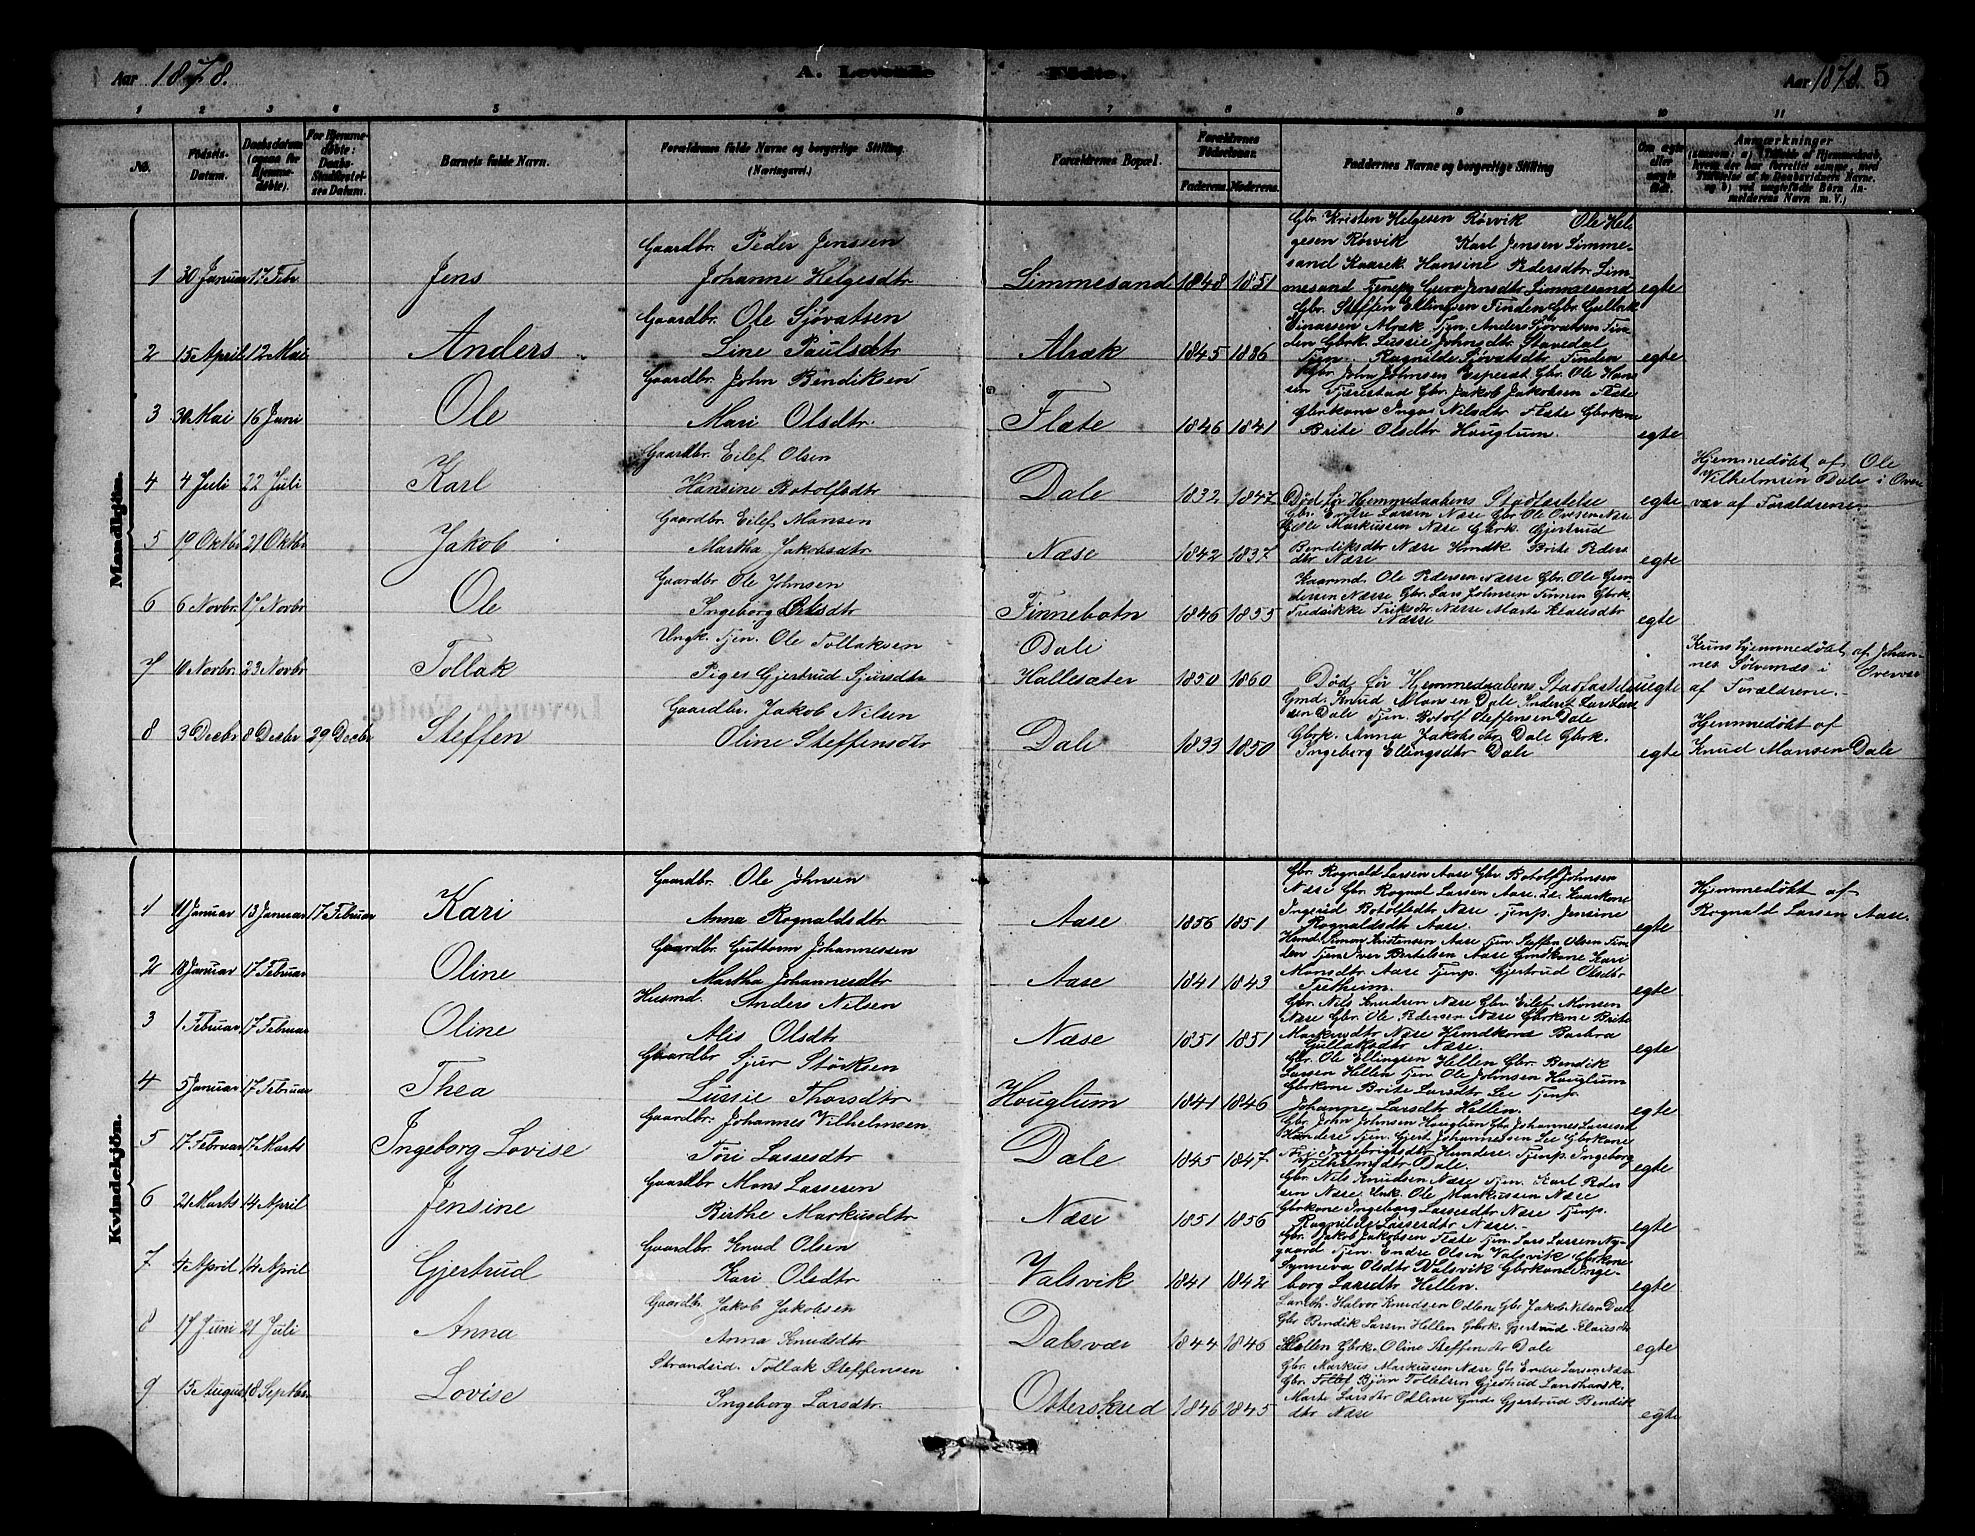 Aar 1878.
A. Levende Fødte.
Aar 1878. 5
1 2 3 4 5 6 7 8 9 10 11
No. Fødsels-Datum. Daabsdatum (ogsaa for Hjemmedøbte). For Hjemmedøbte: Daabs-Stadfæstelses Datum. Barnets fulde Navn. Forældrenes fulde Navne og borgerlige Stilling. (Næringsvei.) Forældrenes Bopæl. Forældrenes Fødselsaar. Faderens. Moderens. Faddernes Navne og borgerlige Stilling Om ægte eller uægte født. Anmærkninger
Mandkjøn.
1 30 Januar 17 Febr. Jens
Gaardbr. Peder Jenssen
Johanne Helgesdtr
Limmesand 1848 1851
Gbr. Kristen Helgesen Rørvik Ole Hel-
gesen Rørvik Karl Jensen Limme-
sand Kaarek. Hansine Pedersdtr. Lim-
mesand Tjenep. Jensdtr Limmesand
egte
2 15 April 12 Mai Anders
Gaardbr. Ole Sjøvatsen
Line Paulsdtr
Alræk 1845 1886
Gbr. Steffen Ellingsen Finden Gbr. Gullak
Einarsen Alræk Tjen. Anders Sjøvatsen Fin-
den Gbrk. Lussie Johnsdtr Stanedal
Tjen. Ragnilde Sjøvatsdtr Finden
egte
3 30 Mai 16 Juni Ole
Gaardbr. John Bendiksen
Mari Olsdtr.
Flæte 1846 1841
Gbr. John Johnsen Esperæt. Gbr. Ole Hans-
sen Tjærestad Gbr. Jakob Jakobsen Flæte
Gbrkone Inga Nilsdtr Flæte Gbrkone
Brite Olsdtr Houglum.
egte
4 4 Juli 22 Juli Karl
Gaardbr. Eilef Olsen
Hansine Botolfsdtr
Dale 1832 1847
Død før Hjemmedaabens Stadfæstelse
egte
Hjemmedøbt af Ole
Vilhelmsen Dale i Over-
vær af Forældrene.
5 19 Oktbr 21 Oktbr Jakob
Gaardbr. Eilef Mansen
Martha Jakobsdtr
Næse 1842 1837
Gbr. Endre Larsen Næse Gbr. Ole Oversen Næse
Ole Markussen Næse Gbrk. Gjertrud
Bendiksdtr Næse Hmdk Brite Peders-
dtr Næse
egte
6 6 Novbr. 17 Novbr Ole
Gaardbr Ole Johnsen
Ingeborg Olsdtr
Finnebotn 1846 1855
Kaarmd. Ole Pedersen Næse Gbr. Ole Gun-
dersen Næse Gbr. Lars Johnsen Finnen Gbrk.
Fredrikke Friksdtr. Næse Marte Klausdtr
Næse
egte
7 10 Novbr. 23 Novbr Tollak
Ungk. Tjen. Ole Tollaksen
Piges Gjertrud Sjursdtr
Dale
Hallesæter 1850 1860
Død før Hjemmedaabens Stadfæstelse
egte
Kuns hjemmedøbt af Johan-
nes Sølvernæs i Overvær
af Forældrene.
8 3 Decbr 8 Decbr 29 Decbr Steffen
Gaardbr. Jakob Nilsen
Oline Steffensdtr
Dale 1833 1850
Gmd. Knud Mansen Dale Inderst Lars Lar-
sen Dale Tjen. Botolf Steffensen Dale
Gbrk. Anna Jakobsdtr Dale Gbrk.
Ingeborg Ellingsdtr Dale
egte
Hjemmedøbt af
Knud Mansen Dale
Kvindekjøn.
1 11 Januar 13 Januar 17 Februar Kari
Gaardbr. Ole Johnsen
Anna Rognaldsdtr
Aase 1856 1851
Gbr. Rognald Larsen Aase Gbr. Botolf Johnsen
Næse Gbr. Rognal Larsen Aase Kaarkone
Ingerid Botolfsdtr Næse Tjenp. Jensine
Rognaldsdtr Aase.
egte
Hjemmedøbt af
Rognald Larsen Aase.
2 18 Januar 17 Februar Oline
Gaardbr. Guttorm Johannessen
Martha Johannesdtr
Aase 1841 1843
Husmd. Simon Kristensen Aase Tjen. Steffen Olsen Fin-
den Tjen Iver Bertelsen Aase Gmdkone Kari
Monsdtr Aase Tjenp. Gjertrud Olsdtr
Tretheim.
egte
3 1 Februar 17 Februar Oline
Husmd. Anders Nilsen
Alis Olsdtr
Næse 1851 1851
Gbr. Nils Knudsen Næse Gbr. Eilef Monsen
Næse Gbr. Ole Pedersen Næse Gbrkone Brite
Markusdtr Næse Hmdkone Barbra
Gullaksdtr Næse.
egte
4 5 Januar 17 Februar Thea
Gaardbr Sjur Størksen
Lussie Thorsdtr
Houglum 1841 1846
Gbr. Ole Ellingsen Hellen Gbr. Bendik
Larsen Hellen Tjen Ole Johnsen Houglum
Gbrkone Brite Larsdtr Lee Tjenp.
Johanne Larsdtr Hellen.
egte
5 17 Februar 17 Marts Ingeborg Lovise
Gaardbr. Johannes Vilhelmsen
Tøri Lassesdtr
Dale 1845 1847
Gbr. John Johnsen Houglum Gbr. Johannes Lassesen
Hundere Tjen. Gjert Johannessen Lee Gbrkone
Tøri Ingebrigtsdtr Hundere Tjenp. Ingeborg
Vilhelmsdtr Dale.
egte
6 21 Marts 14 April Jensine
Gaardbr Mons Lassesen
Birthe Markusdtr
Næse 1851 1856
Gbr. Nils Knudsen Næse Tjen. Karl Peder-
sen Næse. Unk. Ole Markussen Næse
Gbrkone Ingeborg Lassesdtr Næse Tjenp.
Ragnilde Lassesdtr Næse.
egte
7 4 April 14 April Gjertrud
Gaardbr. Knud Olsen
Kari Olsdtr
Valsvik 1841 1842
Gbr. Jakob Jakobsen Flæte Tjen. Lars Larsen Ny-
gaard Tjen. Endre Olsen Valsvik Gbrkone
Synneva Olsdtr Valsvik Gbrkone Inge-
borg Larsdtr Hellen.
egte
8 17 Juni 21 Juli Anna
Gaardbr. Jakob Jakobsen
Anna Knudsdtr
Dalsvær 1844 1846
Landh. Halvor Knudsen Odlene Gbr. Jakob Nilsen Dale
Gbr. Bendik Larsen Hellen Gbrk. Gjertrud Klausdtr
Hellen Gbrk. Oline Steffensdtr Dale
egte
9 15 August 18 Septbr. Lovise
Strandsid. Tollak Steffensen
Ingeborg Larsdtr.
Otterskred 1846 1845
Gbr. Markus Markussen Næse Gbr Endre Larsen Næse
Gbr. Bjørn Tollefsen Gjertrud Landhansk.
Marte Larsdtr Odlene Gmd. Gjertrud Bendik-
dtr Næse
egte